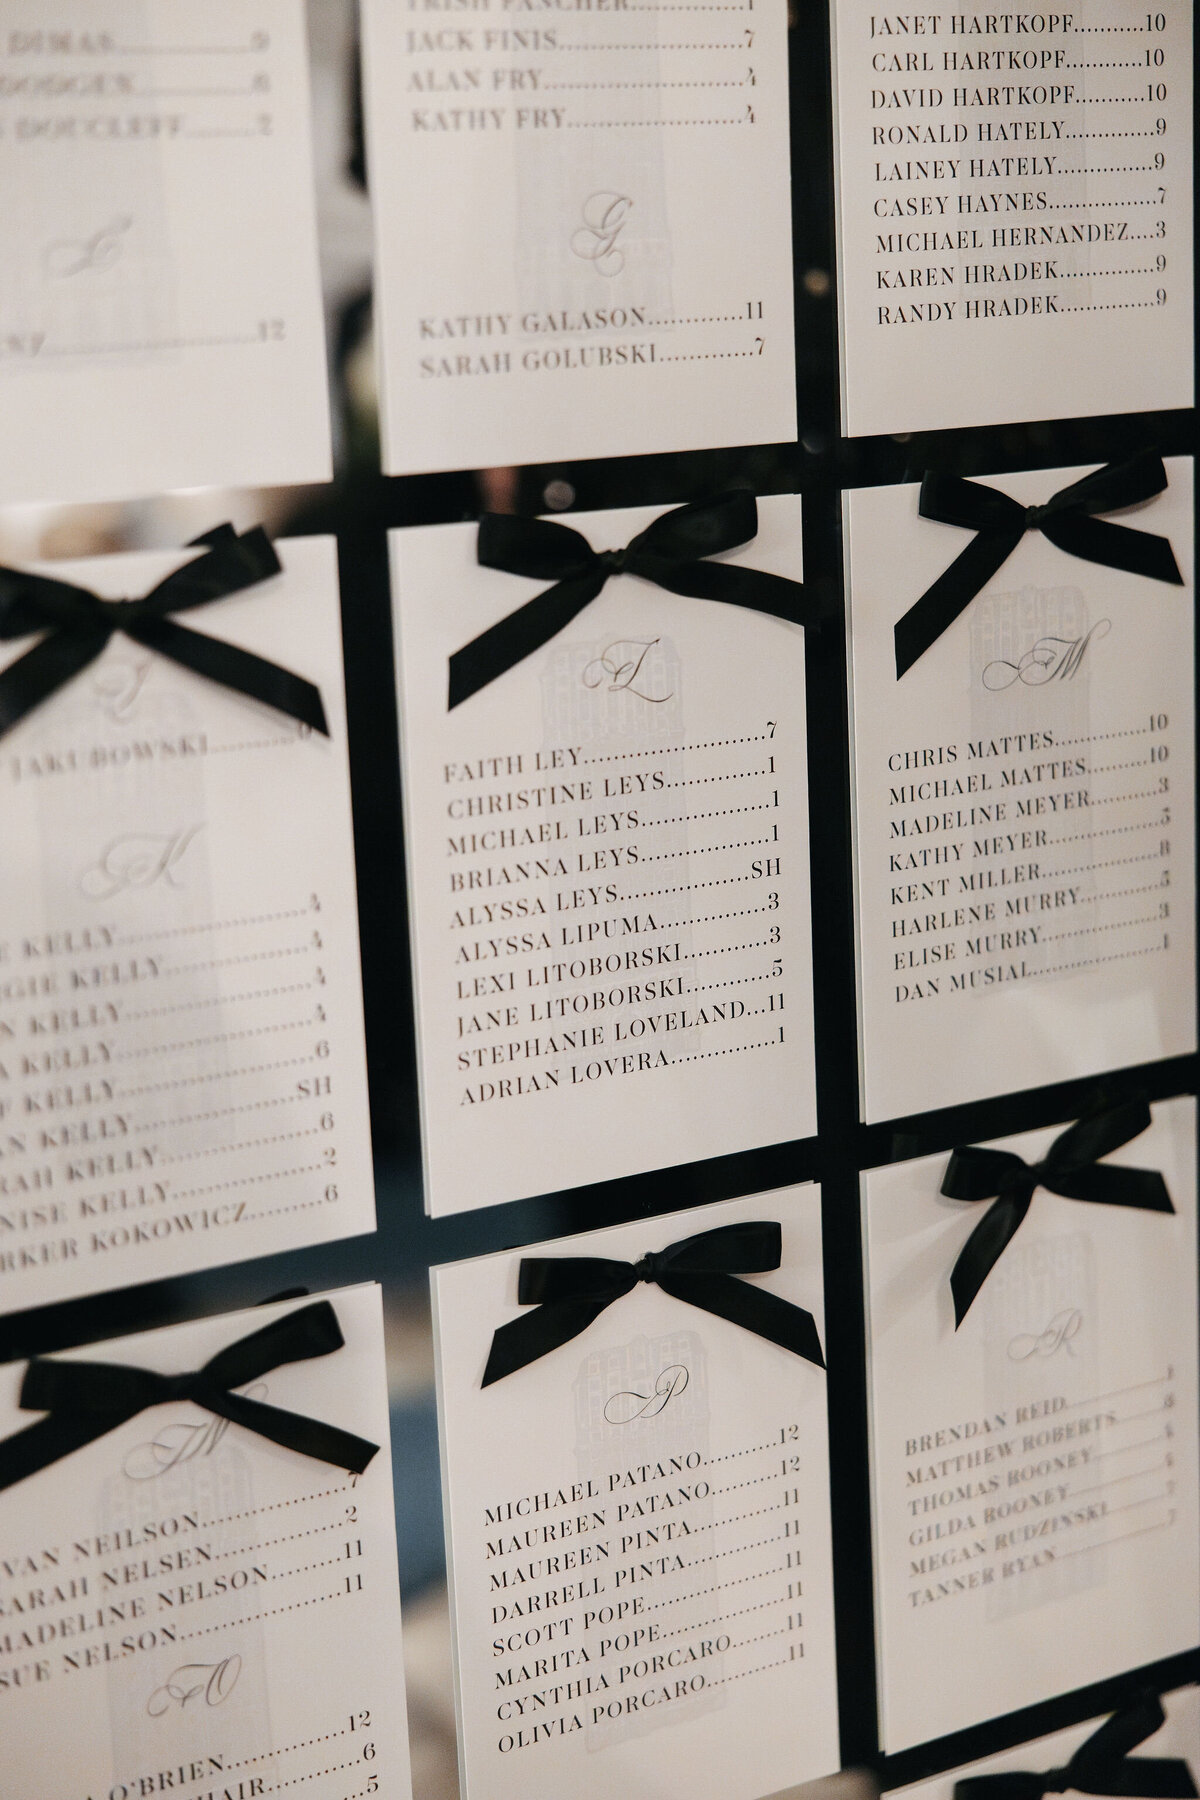 DIMAS..........9
DODGEN..........6
DOUCLEFF..........2
E
..........12
TRISH FANCHER..........1
JACK FINIS..........7
ALAN FRY..........4
KATHY FRY..........4
G
KATHY GALASON..........11
SARAH GOLUBSKI..........7
JANET HARTKOPF..........10
CARL HARTKOPF..........10
DAVID HARTKOPF..........10
RONALD HATELY..........9
LAINEY HATELY..........9
CASEY HAYNES..........7
MICHAEL HERNANDEZ....3
KAREN HRADEK..........9
RANDY HRADEK..........9
J
JAKUBOWSKI..........
K
KELLY..........4
KELLY..........4
KELLY..........4
KELLY..........4
KELLY..........6
KELLY..........SH
KELLY..........6
KELLY..........2
KOKOWICZ..........6
L
FAITH LEY..........7
CHRISTINE LEYS..........1
MICHAEL LEYS..........1
BRIANNA LEYS..........1
ALYSSA LEYS..........SH
ALYSSA LIPUMA..........3
LEXI LITOBORSKI..........3
JANE LITOBORSKI..........5
STEPHANIE LOVELAND...11
ADRIAN LOVERA..........1
M
CHRIS MATTES..........10
MICHAEL MATTES..........10
MADELINE MEYER..........3
KATHY MEYER..........5
KENT MILLER..........8
HARLENE MURRY..........5
ELISE MURRY..........3
DAN MUSIAL..........1
N
VAN NEILSON..........7
SARAH NELSEN..........2
MADELINE NELSON..........11
SUE NELSON..........11
O
O'BRIEN..........12
HAIR..........6
5
P
MICHAEL PATANO..........12
MAUREEN PATANO..........12
MAUREEN PINTA..........11
DARRELL PINTA..........11
SCOTT POPE..........11
MARITA POPE..........11
CYNTHIA PORCARO..........11
OLIVIA PORCARO..........11
R
BRENDAN REID..........
MATTHEW ROBERTS..........8
THOMAS ROONEY..........
GILDA ROONEY..........
MEGAN RUDZINSKI..........
TANNER RYAN..........